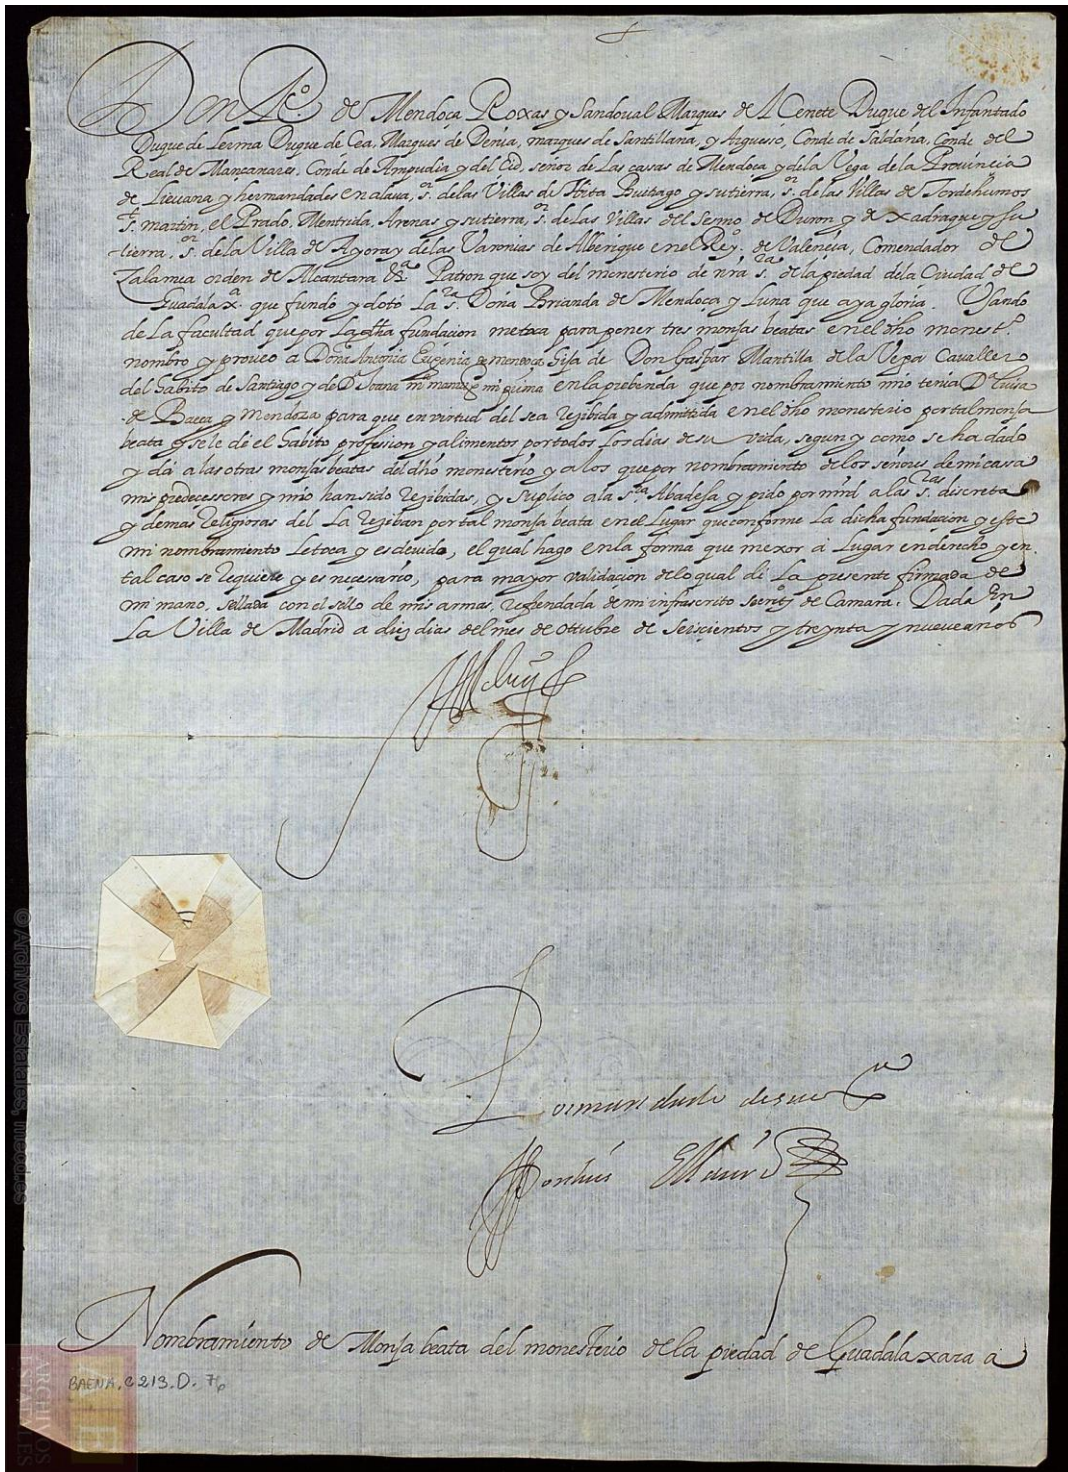 Don R.º de Mendoça Roxas y Sandoual Marques del Cenete Duque del Infantado
Duque de Lerma Duque de Cea, Marques de Denia, marques de Santillana, y Arguesso, Conde de Saldaña, Conde del
Real de Mancanares, Conde de Ampudia y del Cid, señor de Las casas de Mendoca y de la Vega de la Prouincia
de Lieuana y hermandades en alaua, s.or de las Villas de Hita Buitrago y su tierra, s.or de las Villas de Tordehumos
s.t martin, el Prado, Mentrida, Arenas y su tierra, s.or de Las Villas del Sesmo de Duron y de xadraque y su
tierra, s.or de la Villa de Ayora y de las Varonias de Alberique en el Rey.º de Valencia, Comendador de
Zalamea orden de Alcantara &a Patron que soy del monesterio de nrã s.ra de la piedad de la Ciudad de
Guadalax.a que fundó y dotó La s.ra Doña Brianda de Mendoca y Luna que aya gloria. Usando
de La facultad que por La dha fundacion me toca para poner tres monjas beatas en el dho monest.º
nombro y proueo a Doña Antonia Eugenia de mendoca hija de Don Gaspar Mantilla de la Vega Cauallero
del habito de Santiago y de D.ª Joana mi prima en la prebenda que por nombramiento mio tenia D.ª Luisa
de Baeca y Mendoza para que en virtud del sea rezibida y admitida en el dho monesterio por tal monja
beata y se le dé el habito profession y alimentos por todos Los dias de su vida, segun y como se ha dado
y dá a las otras monjas beatas del dho monesterio y a los que por nombramiento de los señores de mi cassa
mis predecessores y mio han sido rezibidas, y suplico a la s.ra Abadesa y pido por mrd a las s.ras discretas
y demas Religiosas del La reziban por tal monja beata en el Lugar que conforme La dicha fundacion y este
mi nombramiento Le toca y es deuido, el qual hago en la forma que mexor á Lugar en derecho y en
tal caso se requiere y es necessario, para mayor validacion de lo qual di La presente firmada de
mi mano, sellada con el sello de mis armas, refrendada de mi infrascrito secret.º de Camara. Dada En
La Villa de Madrid a diez dias del mes de Ottubre de Seiscientos y treynta y nueue años
Por mandado de su ex.a
Nombramiento de Monja beata del monesterio de la piedad de Guadalaxara a
BAENA, C 213. D. 76
© Archivos Estatales, mecd.es
ARCHIVOS
ESTATALES